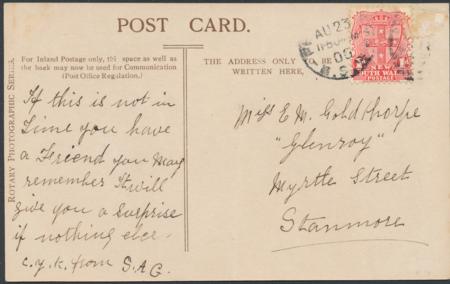 POST CARD.
For Inland Postage only, this space as well as
the back may now be used for Communication
(Post Office Regulation.)
THE ADDRESS ONLY TO BE
WRITTEN HERE,
ROTARY PHOTOGRAPHIC SERIES.
AU 23
NEW
SOUTH WALES
POSTAGE
If this is not in
time you have
a Friend you May
remember It will
give you a Surprise
if nothing else-
c.y.k. from S.A.G.
Miss E. M. Goldthorpe
"Glenroy"
Myrtle Street
Stanmore